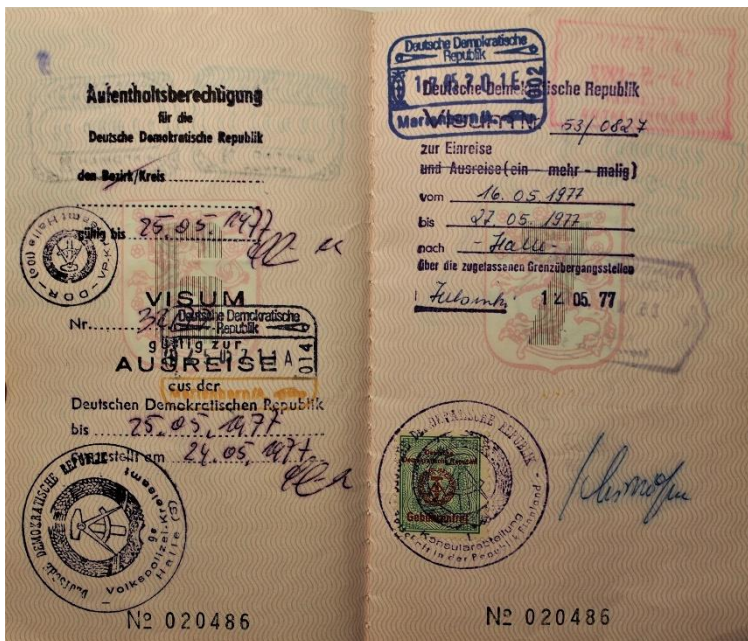 Aufenthaltsberechtigung
für die
Deutsche Demokratische Republik
den Bezirk/Kreis
gültig bis 25.05.1977
VP-Kreisamt Halle
DDR
VISUM
Nr.
Deutsche Demokratische
Republik
gültig zur
AUSREISE
014
aus der
Deutschen Demokratischen Republik
bis 25.05.1977
ausgestellt am 24.05.1977
Deutsche DEMOKRATISCHE REPUBLIK
Volkspolizei-Kreisamt
Halle (S)
96
№ 020486
Deutsche Demokratische
Republik
002
Marienborn
Deutsche Demokratische Republik
Visum Nr. 53/0827
zur Einreise
und Ausreise (ein - mehr - malig)
vom 16.05.1977
bis 27.05.1977
nach - Halle -
über die zugelassenen Grenzübergangsstellen
12. 05. 77
DEMOKRATISCHE REPUBLIK
Deutsche
Demokratische Republik
Gebührenfrei
Konsularabteilung
in der Republik Finnland
№ 020486